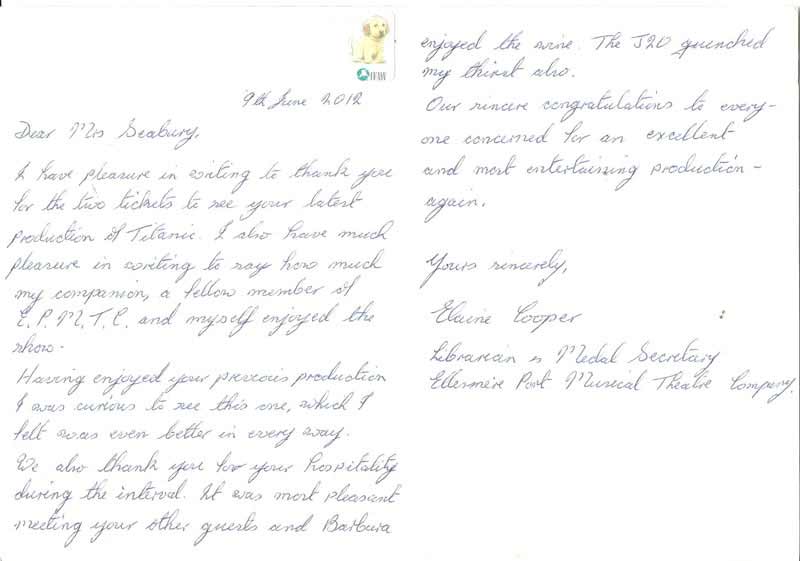 IFAW
9th June 2012
Dear Mrs Seabury,
I have pleasure in writing to thank you
for the two tickets to see your latest
production of Titanic. I also have much
pleasure in writing to say how much
my companion, a fellow member of
E.P.M.T.C. and myself enjoyed the
show.
Having enjoyed your previous production
I was curious to see this one, which I
felt was even better in every way.
We also thank you for your hospitality
during the interval. It was most pleasant
meeting your other guests and Barbara
enjoyed the wine. The J20 quenched
my thirst also.
Our sincere congratulations to every-
one concerned for an excellent
and most entertaining production -
again.
Yours sincerely,
Elaine Cooper
Librarian & Medal Secretary
Ellesmere Port Musical Theatre Company.